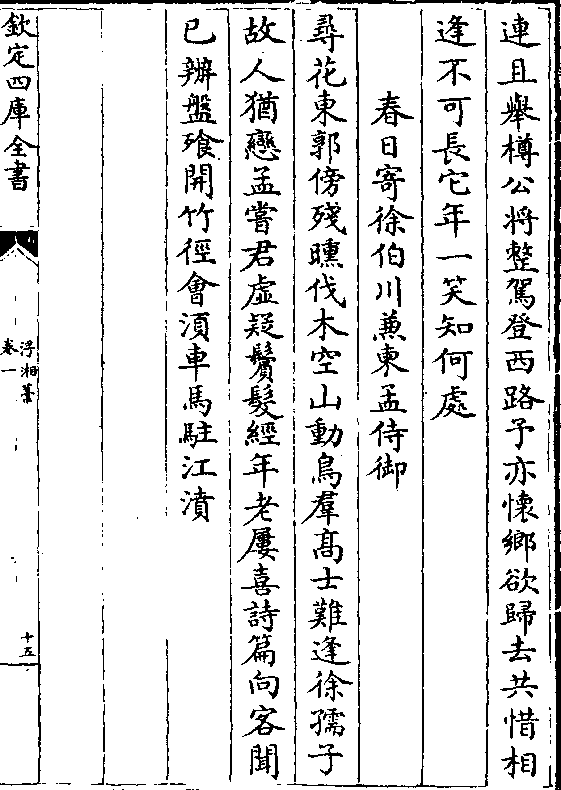 連且舉樽公將整駕登西路予亦懷鄉欲歸去共惜相
逢不可長它年一笑知何處
春日寄徐伯川兼柬孟侍御
尋花東郭傍殘曛伐木空山動鳥羣髙士難逢徐孺子
故人猶戀孟嘗君虛疑鬢髮經年老屢喜詩篇向客聞
已辦盤飱開竹徑會湏車馬駐江濆
欽定四庫全書
浮湘藁
卷一
十五